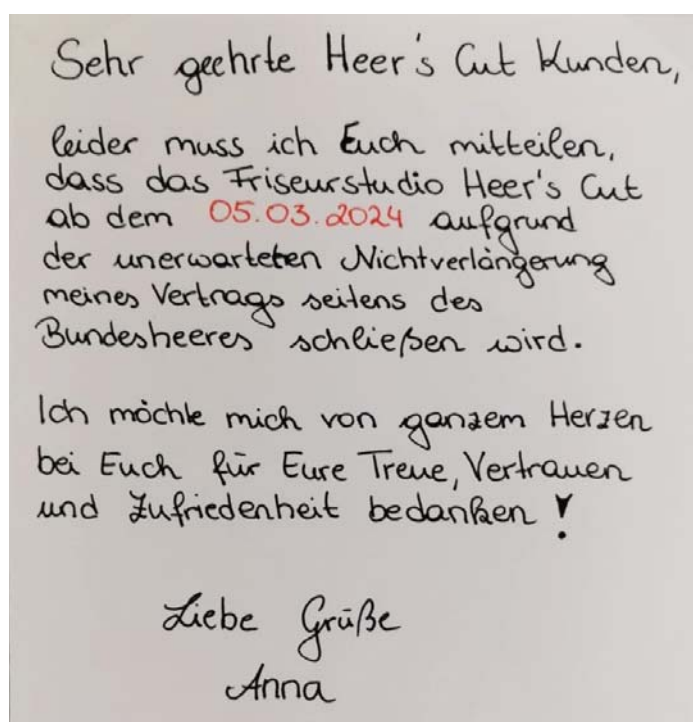 Sehr geehrte Heer's Cut Kunden,
leider muss ich Euch mitteilen,
dass das Friseurstudio Heer's Cut
ab dem 05.03.2024 aufgrund
der unerwarteten Nichtverlängerung
meines Vertrags seitens des
Bundesheeres schließen wird.
Ich möchte mich von ganzem Herzen
bei Euch für Eure Treue, Vertrauen
und Zufriedenheit bedanken!
Liebe Grüße
Anna